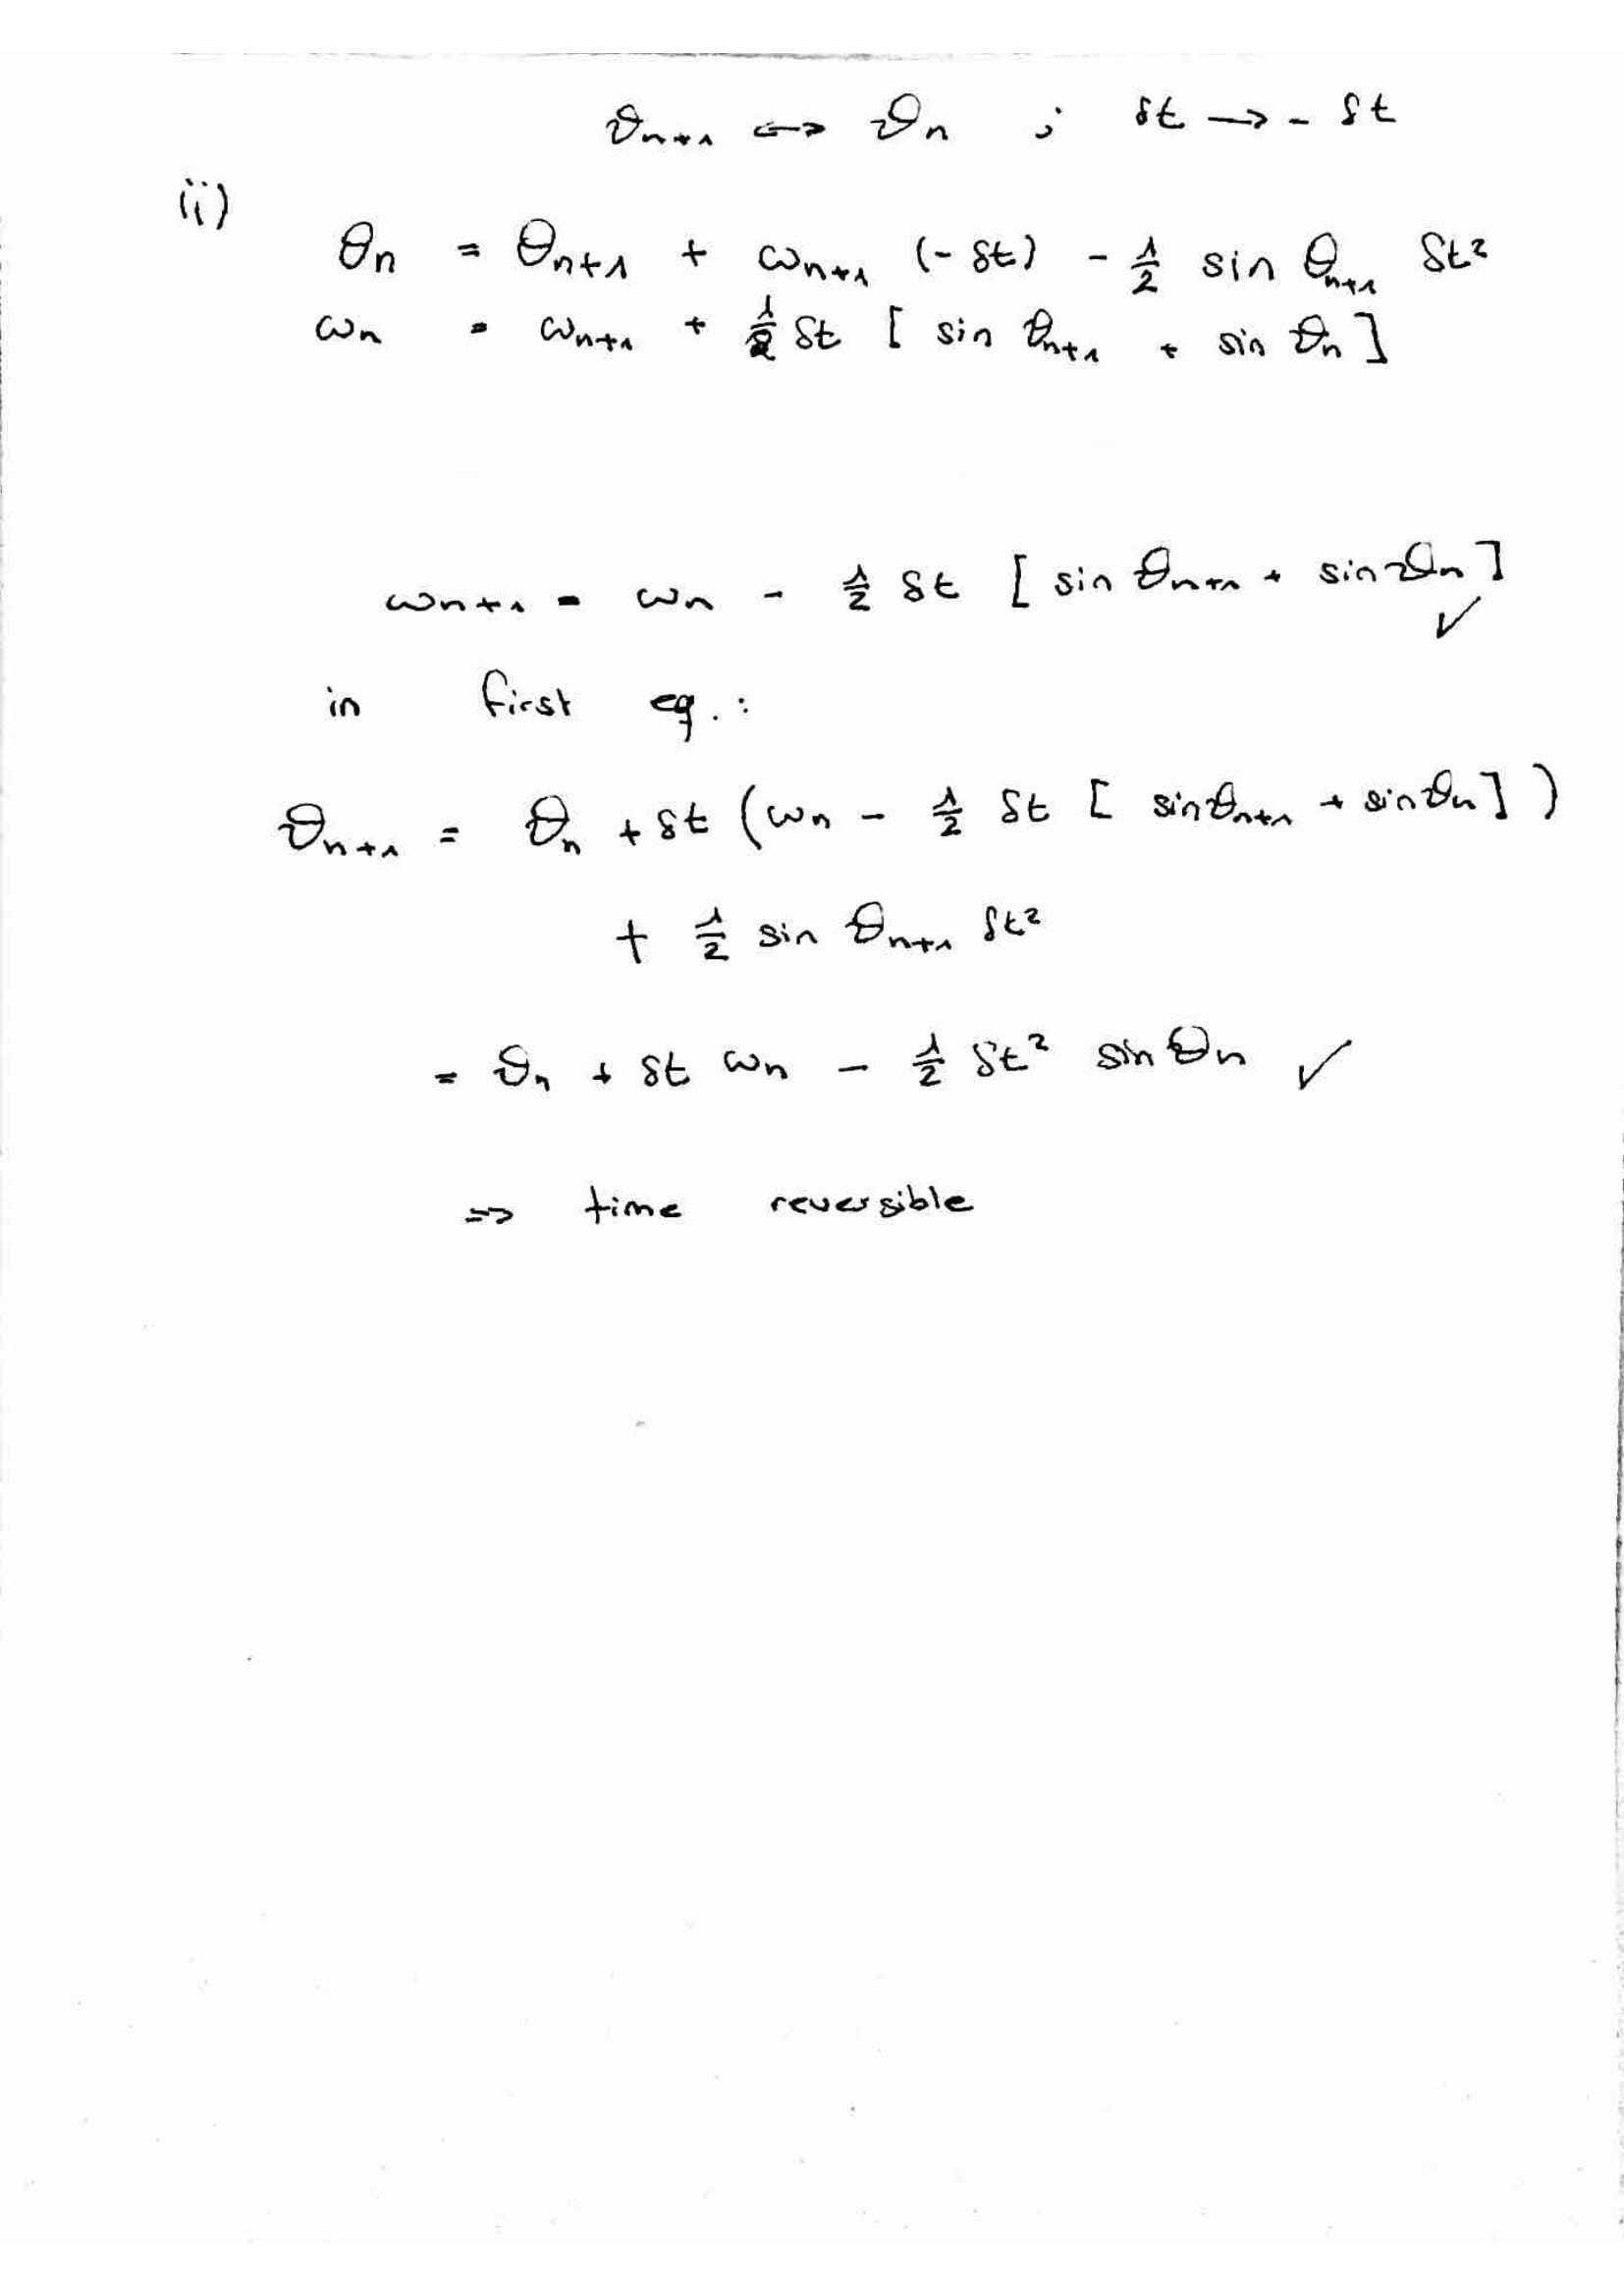 ϑn+1 <-> ϑn ; δt -> - δt
ii)
θn = θn+1 + ωn+1 (- δt) - 1/2 sin θn+1 δt²
ωn = ωn+1 + 1/2 δt [ sin ϑn+1 + sin ϑn ]
ωn+1 = ωn - 1/2 δt [ sin ϑn+1 + sin ϑn ] ✓
in first eq.:
ϑn+1 = ϑn + δt (ωn - 1/2 δt [ sin ϑn+1 + sin ϑn ] )
+ 1/2 sin θn+1 δt²
= ϑn + δt ωn - 1/2 δt² sin θn ✓
=> time reversible